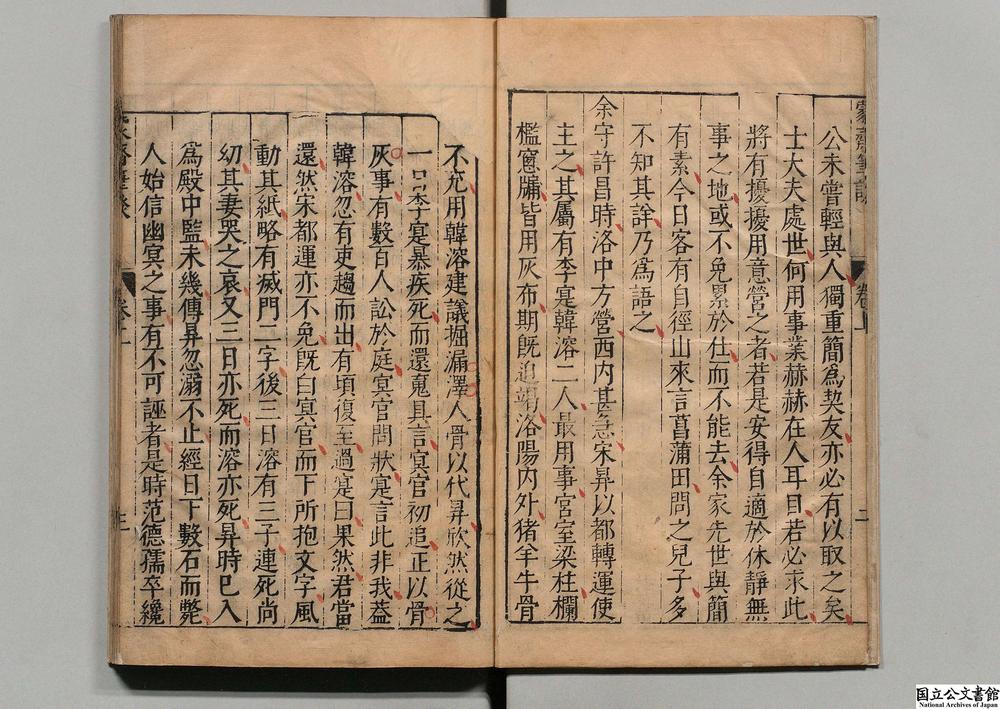 公未嘗輕與人獨重簡為契友亦必有以取之矣
士大夫處世何用事業赫赫在人耳目若必求此
將有擾擾用意營之者若是安得自適於休靜無
事之地或不免累於仕而不能去余家先世與簡
有素今日客有自徑山來言菖蒲田問之兒子多
不知其詳乃為語之
余守許昌時洛中方營西內甚急宋昇以都轉運使
主之其屬有李寔韓溶二人最用事宮室梁柱欄
檻窻牖皆用灰布期旣迫竭洛陽內外猪羊牛骨
不充用韓溶建議掘漏澤人骨以代昇欣然從之
一日李寔暴疾死而還䰟具言冥官初追正以骨
灰事有數百人訟於庭冥官問狀寔言此非我蓋
韓溶忽有吏趨而出有頃復至過寔曰果然君當
還然宋都運亦不免旣白冥官而下所抱文字風
動其紙略有滅門二字後三日溶有三子連死尚
幼其妻哭之哀又三日亦死而溶亦死昇時已入
為殿中監未幾傳昇忽溺不止經日下數石而斃
人始信幽冥之事有不可誣者是時范德孺卒纔
蒙齋筆談
卷上
二
三
国立公文書館
National Archives of Japan